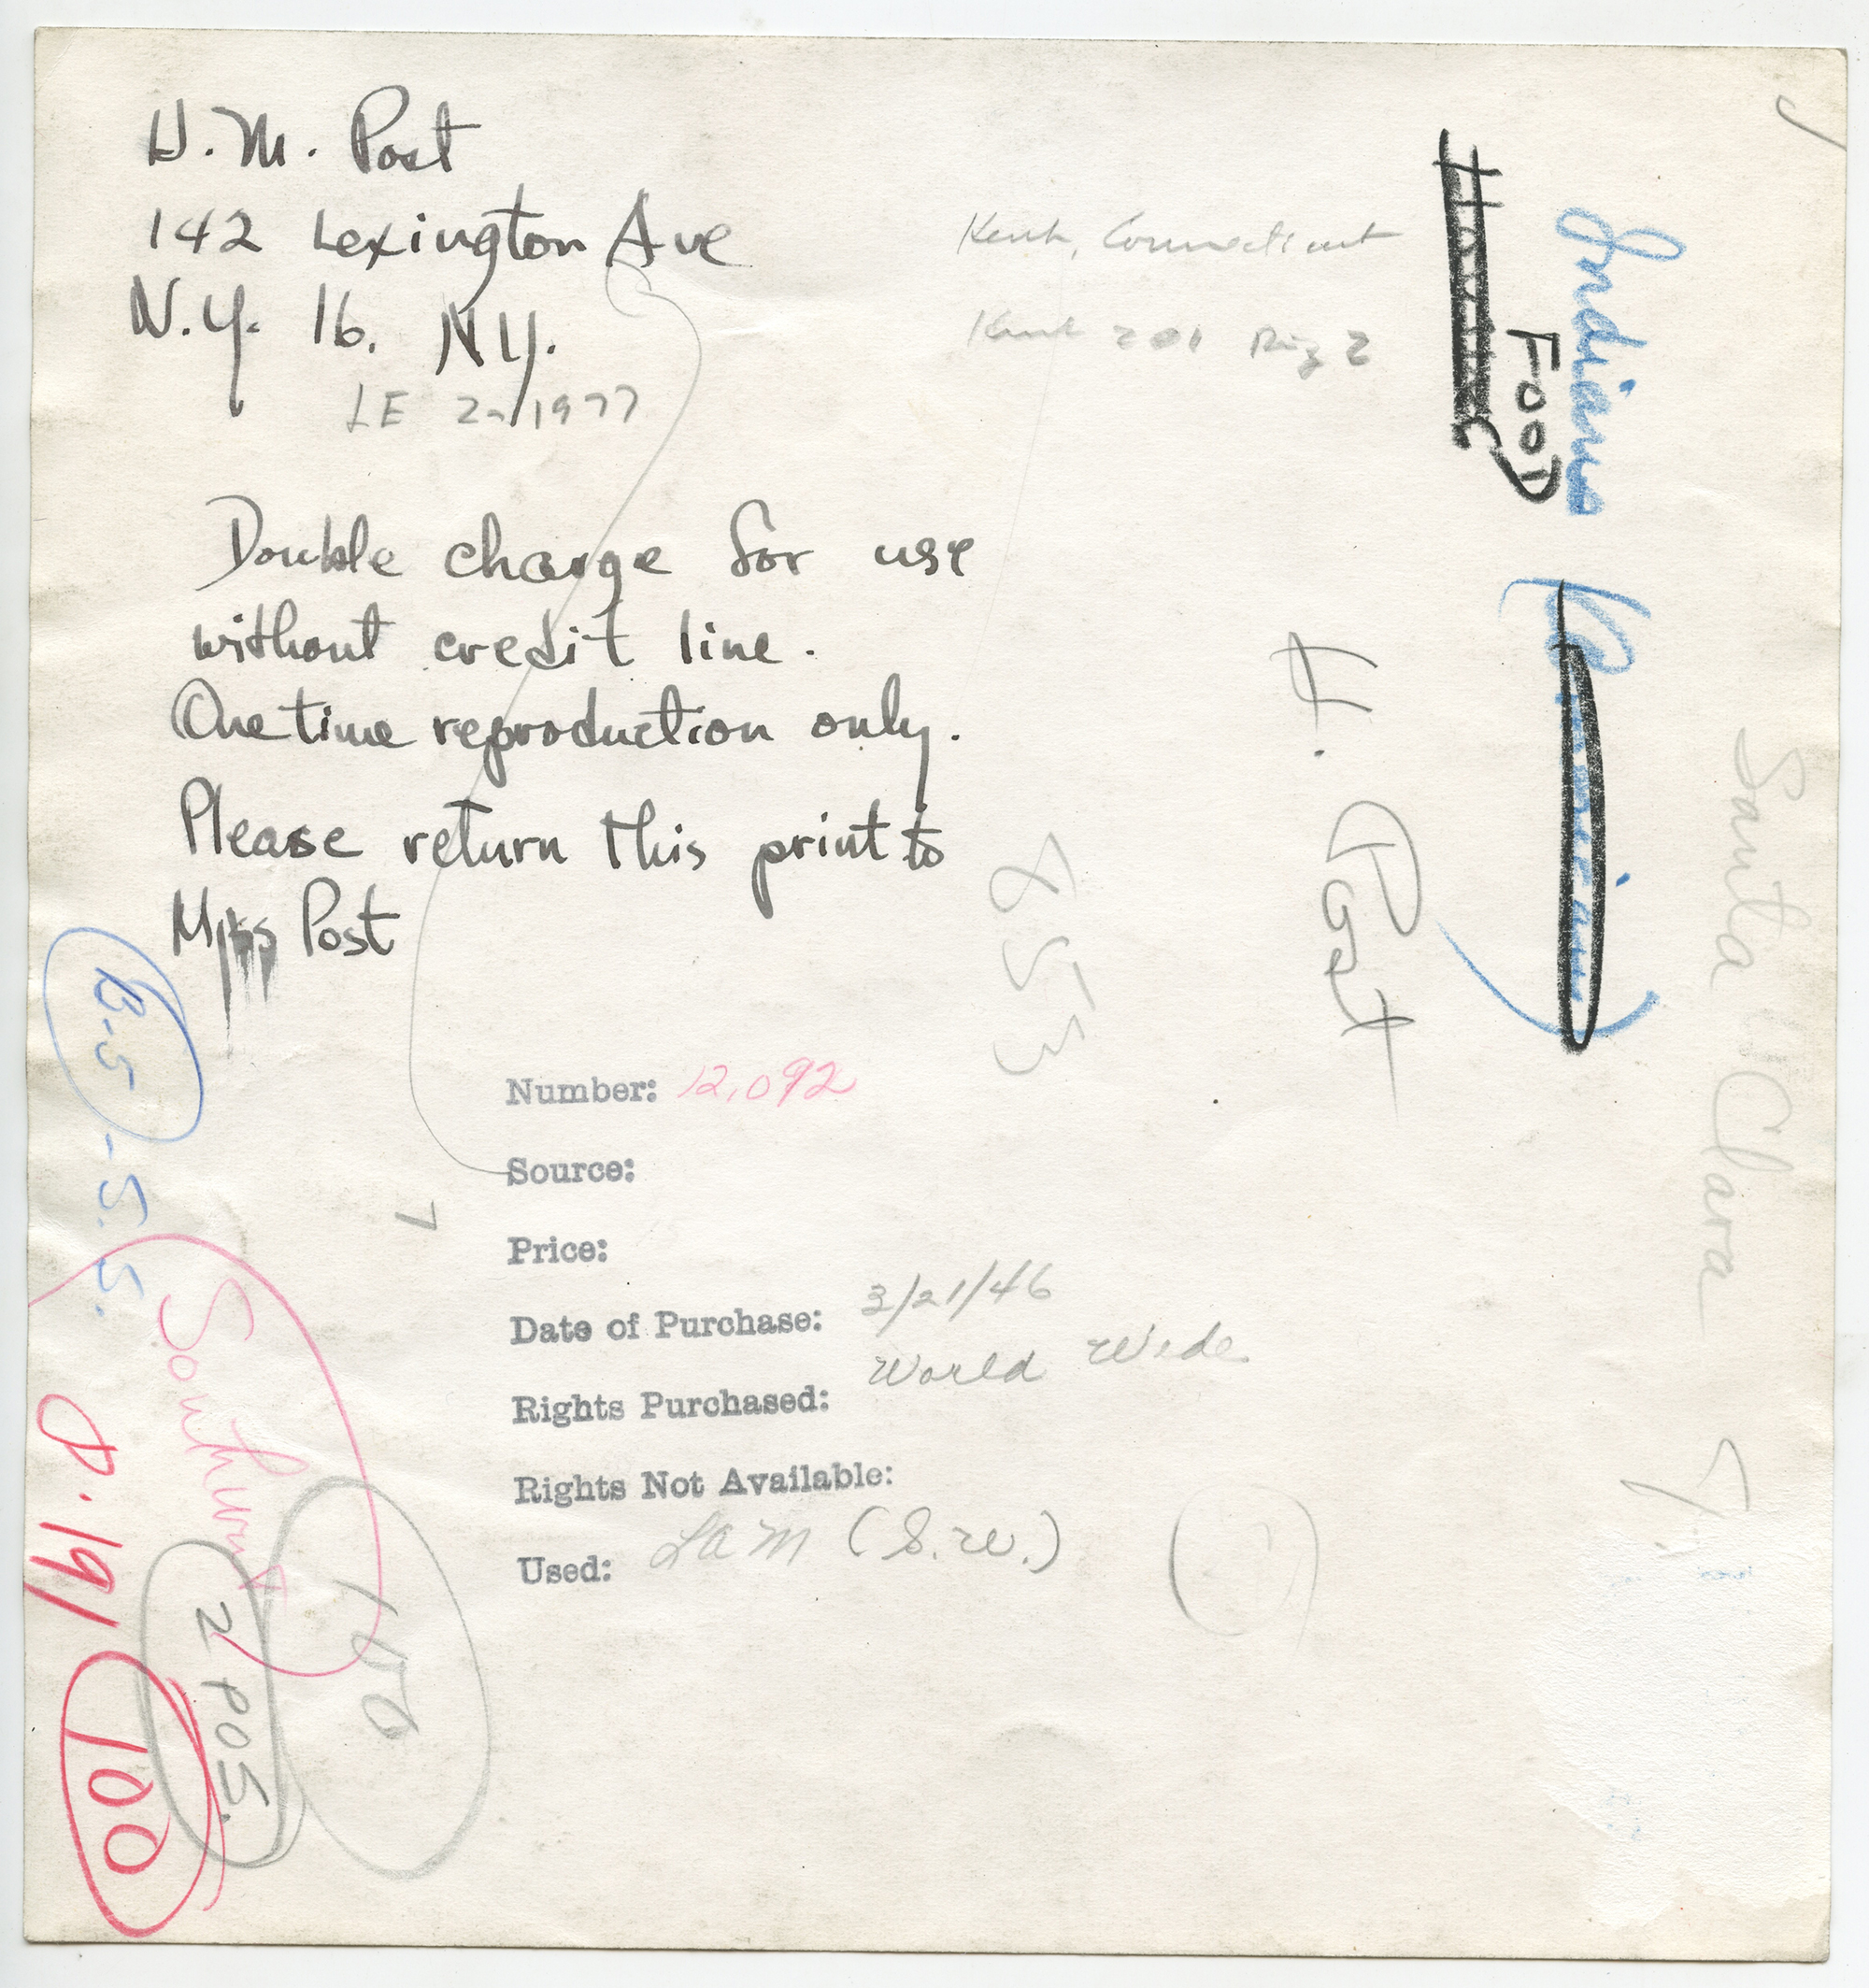 H. M. Post
142 Lexington Ave
N.Y. 16. N.Y.
LE 2-1977
Kent, Connecticut
Kent 201 Ring 2
Double charge for use
without credit line.
One time reproduction only.
Please return this print to
Post
Indians
FOOD
H. Post
Santa Clara
853
Number: 12,092
Source:
Price:
Date of Purchase: 3/21/46
Rights Purchased: World Wide
Rights Not Available:
Used: LAM (S.W.)
B-5-5.5.
Southwest
2 POS.
100
P.191
100
7